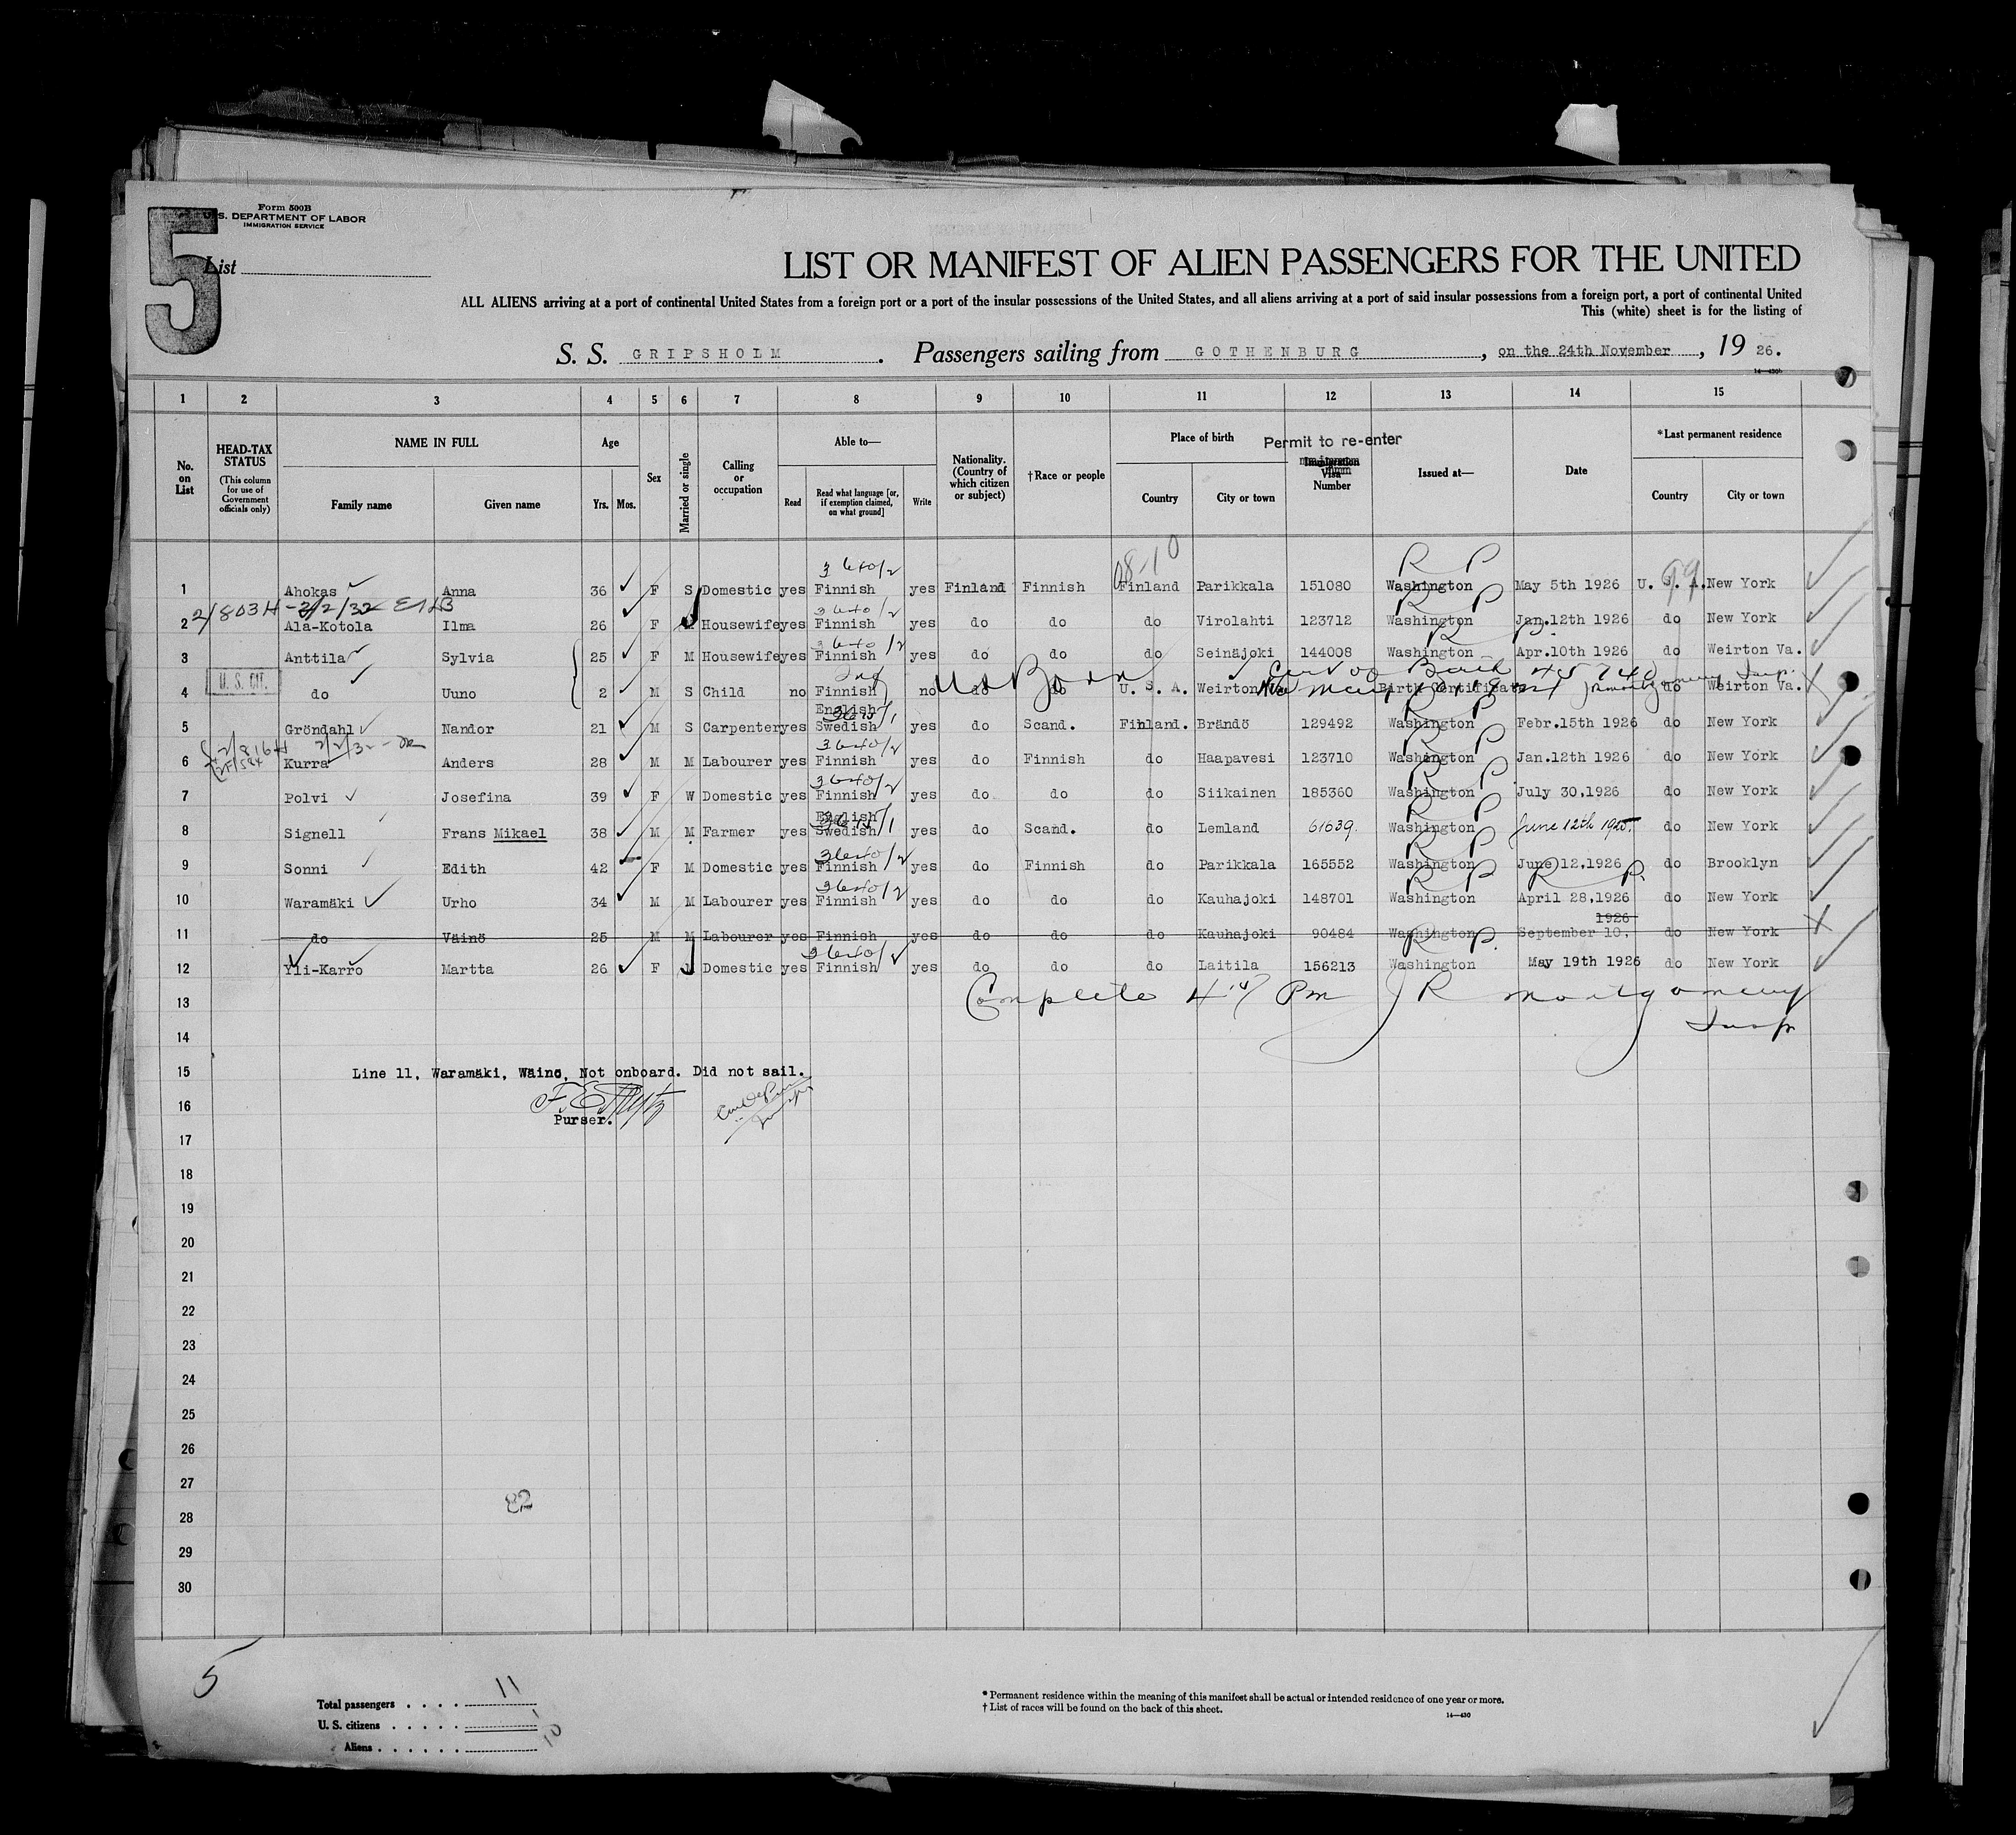 Form 500B
U. S. DEPARTMENT OF LABOR
IMMIGRATION SERVICE
5
List
LIST OR MANIFEST OF ALIEN PASSENGERS FOR THE UNITED
ALL ALIENS arriving at a port of continental United States from a foreign port or a port of the insular possessions of the United States, and all aliens arriving at a port of said insular possessions from a foreign port, a port of continental United
This (white) sheet is for the listing of
S. S. GRIPSHOLM . Passengers sailing from GOTHENBURG , on the 24th November , 19 26.
14-430b
1 2 3 4 5 6 7 8 9 10 11 12 13 14 15
No. on List
HEAD-TAX STATUS (This column for use of Government officials only)
NAME IN FULL
Family name Given name
Age
Yrs. Mos.
Sex
Married or single
Calling or occupation
Able to—
Read Read what language [or, if exemption claimed, on what ground] Write
Nationality. (Country of which citizen or subject)
†Race or people
Place of birth
Country City or town
Permit to re-enter
Immigration Visa Number
Issued at—
Date
*Last permanent residence
Country City or town
36 40/2 08-10 R P 99
1 Ahokas Anna 36 F S Domestic yes Finnish yes Finland Finnish Finland Parikkala 151080 Washington May 5th 1926 U. S. A. New York
2/803H - 2/2/32 36 40/2 R P
2 Ala-Kotola Ilma 26 F M Housewife yes Finnish yes do do do Virolahti 123712 Washington Jan.12th 1926 do New York
36 40/2 R P
3 Anttila Sylvia 25 F M Housewife yes Finnish yes do do do Seinäjoki 144008 Washington Apr.10th 1926 do Weirton Va.
U. S. CIT. US Born
4 do Uuno 2 M S Child no Finnish no do do U. S. A. Weirton Va. Birth Certificate do Weirton Va.
English 36 75/1 R P
5 Gröndahl Nandor 21 M S Carpenter yes Swedish yes do Scand. Finland. Brändö 129492 Washington Febr.15th 1926 do New York
2/816H 2/2/32 36 40/2 R P
6 Kurra Anders 28 M M Labourer yes Finnish yes do Finnish do Haapavesi 123710 Washington Jan.12th 1926 do New York
36 40/2 R P
7 Polvi Josefina 39 F W Domestic yes Finnish yes do do do Siikainen 185360 Washington July 30,1926 do New York
English 36 75/1 R P
8 Signell Frans Mikael 38 M M Farmer yes Swedish yes do Scand. do Lemland 61639. Washington June 12th 1925. do New York
36 40/2 R P
9 Sonni Edith 42 F M Domestic yes Finnish yes do Finnish do Parikkala 165552 Washington June 12,1926 do Brooklyn
36 40/2 R P R P.
10 Waramäki Urho 34 M M Labourer yes Finnish yes do do do Kauhajoki 148701 Washington April 28,1926 do New York
1926
11 do Väinö 25 M M Labourer yes Finnish yes do do do Kauhajoki 90484 Washington September 10, do New York
36 40/2 R P.
12 Yli-Karro Martta 26 F M Domestic yes Finnish yes do do do Laitila 156213 Washington May 19th 1926 do New York
13 Complete Pm J R Montgomery
14 Insp
15 Line 11, Waramäki, Wäino, Not onboard. Did not sail.
16
Purser.
17
18
19
20
21
22
23
24
25
26
27
82
28
29
30
5
Total passengers . . . . 11
U. S. citizens . . . . . 1
Aliens . . . . . . 10
* Permanent residence within the meaning of this manifest shall be actual or intended residence of one year or more.
† List of races will be found on the back of this sheet.
14-430